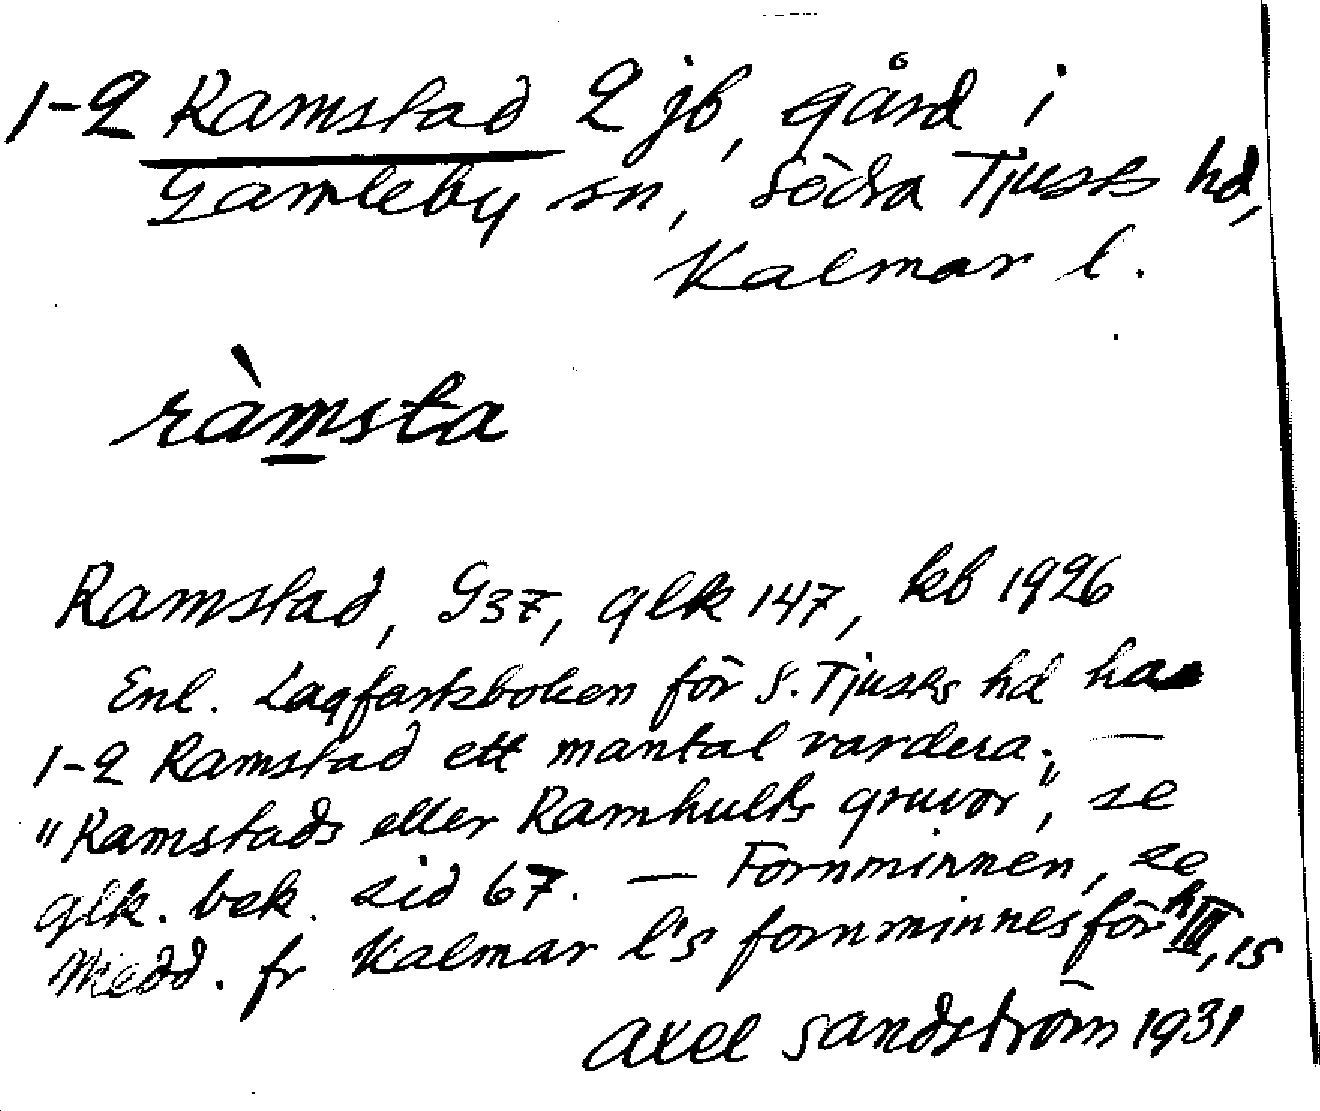 1-2 Ramstad 2 jb, gård i
Gamleby sn, Södra Tjusts hd,
Kalmar l.
ràmsta
Ramstad, G37, glk 147, kb 1926
Enl. Lagfartsboken för S. Tjusts hd har
1-2 Ramstad ett mantal vardera; —
"Ramstads eller Ramhults gruvor", se
glk. bek. sid 67. — Fornminnen, se
Medd. fr Kalmar l's fornminnesför h III, 15
Axel Sandström 1931